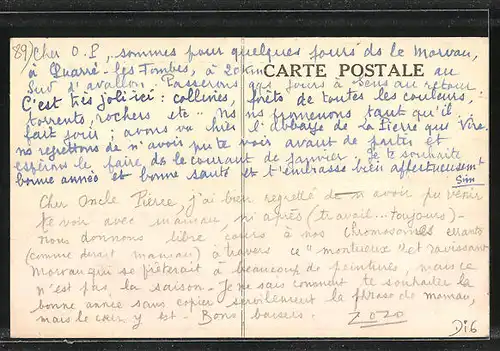 89) Cher O. P., sommes pour quelques jours ds le Morvan,
à Quarré-les Tombes, à 20 km
CARTE POSTALE
au
Sud d'avallon. Passerons qqs jours à Sens au retour
C'est très joli ici : collines, forêts de toutes les couleurs,
torrents, rochers etc.. Ns ns promenons tant qu'il
fait jour ; avons vu hier l'abbaye de la Pierre qui Vire.
ns regrettons de n'avoir pu te voir avant de partir et
espérons le faire ds le courant de janvier. Je te souhaite
bonne année et bonne santé et t'embrasse bien affectueusement
Sim
Cher Oncle Pierre, j'ai bien regretté de n'avoir pu venir
te voir avec maman, ni après (travail... toujours) -
nous donnons libre cours à nos chromosomes errants
(comme dirait maman) à travers ce "montueux" et ravissant
Morvan qui se prêterait à beaucoup de peintures, mais ce
n'est pas la saison. Je ne sais comment te souhaiter la
bonne année sans copier servilement la phrase de maman,
mais le cœur y est - Bons baisers.
Zozo
Di6